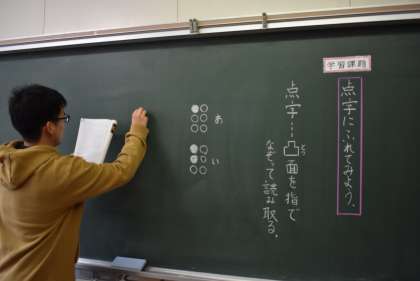 学習課題
点字にふれてみよう。
点字…凸面を指で
とつ
なぞって読み取る。
あ
い